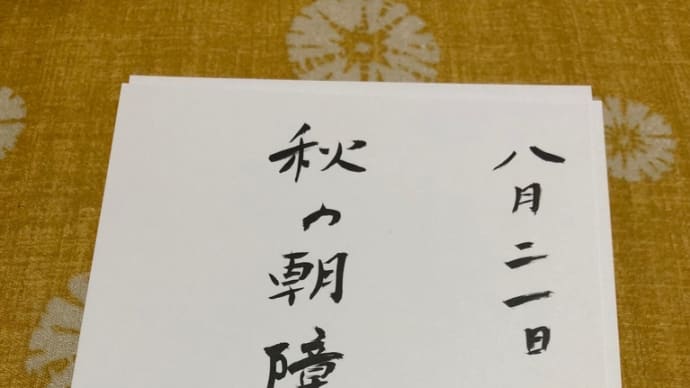 八月二一日
秋の朝障